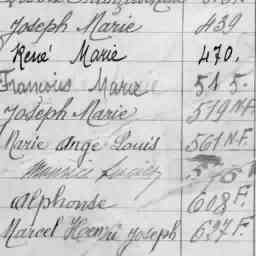 Joseph Marie 439
René Marie 470.
François Marie 515.
Joseph Marie 519 N.F.
Marie Ange Louis 561 N.F.
Maurice
Alphonse 608 F.
Marcel Henri Joseph 627 F.